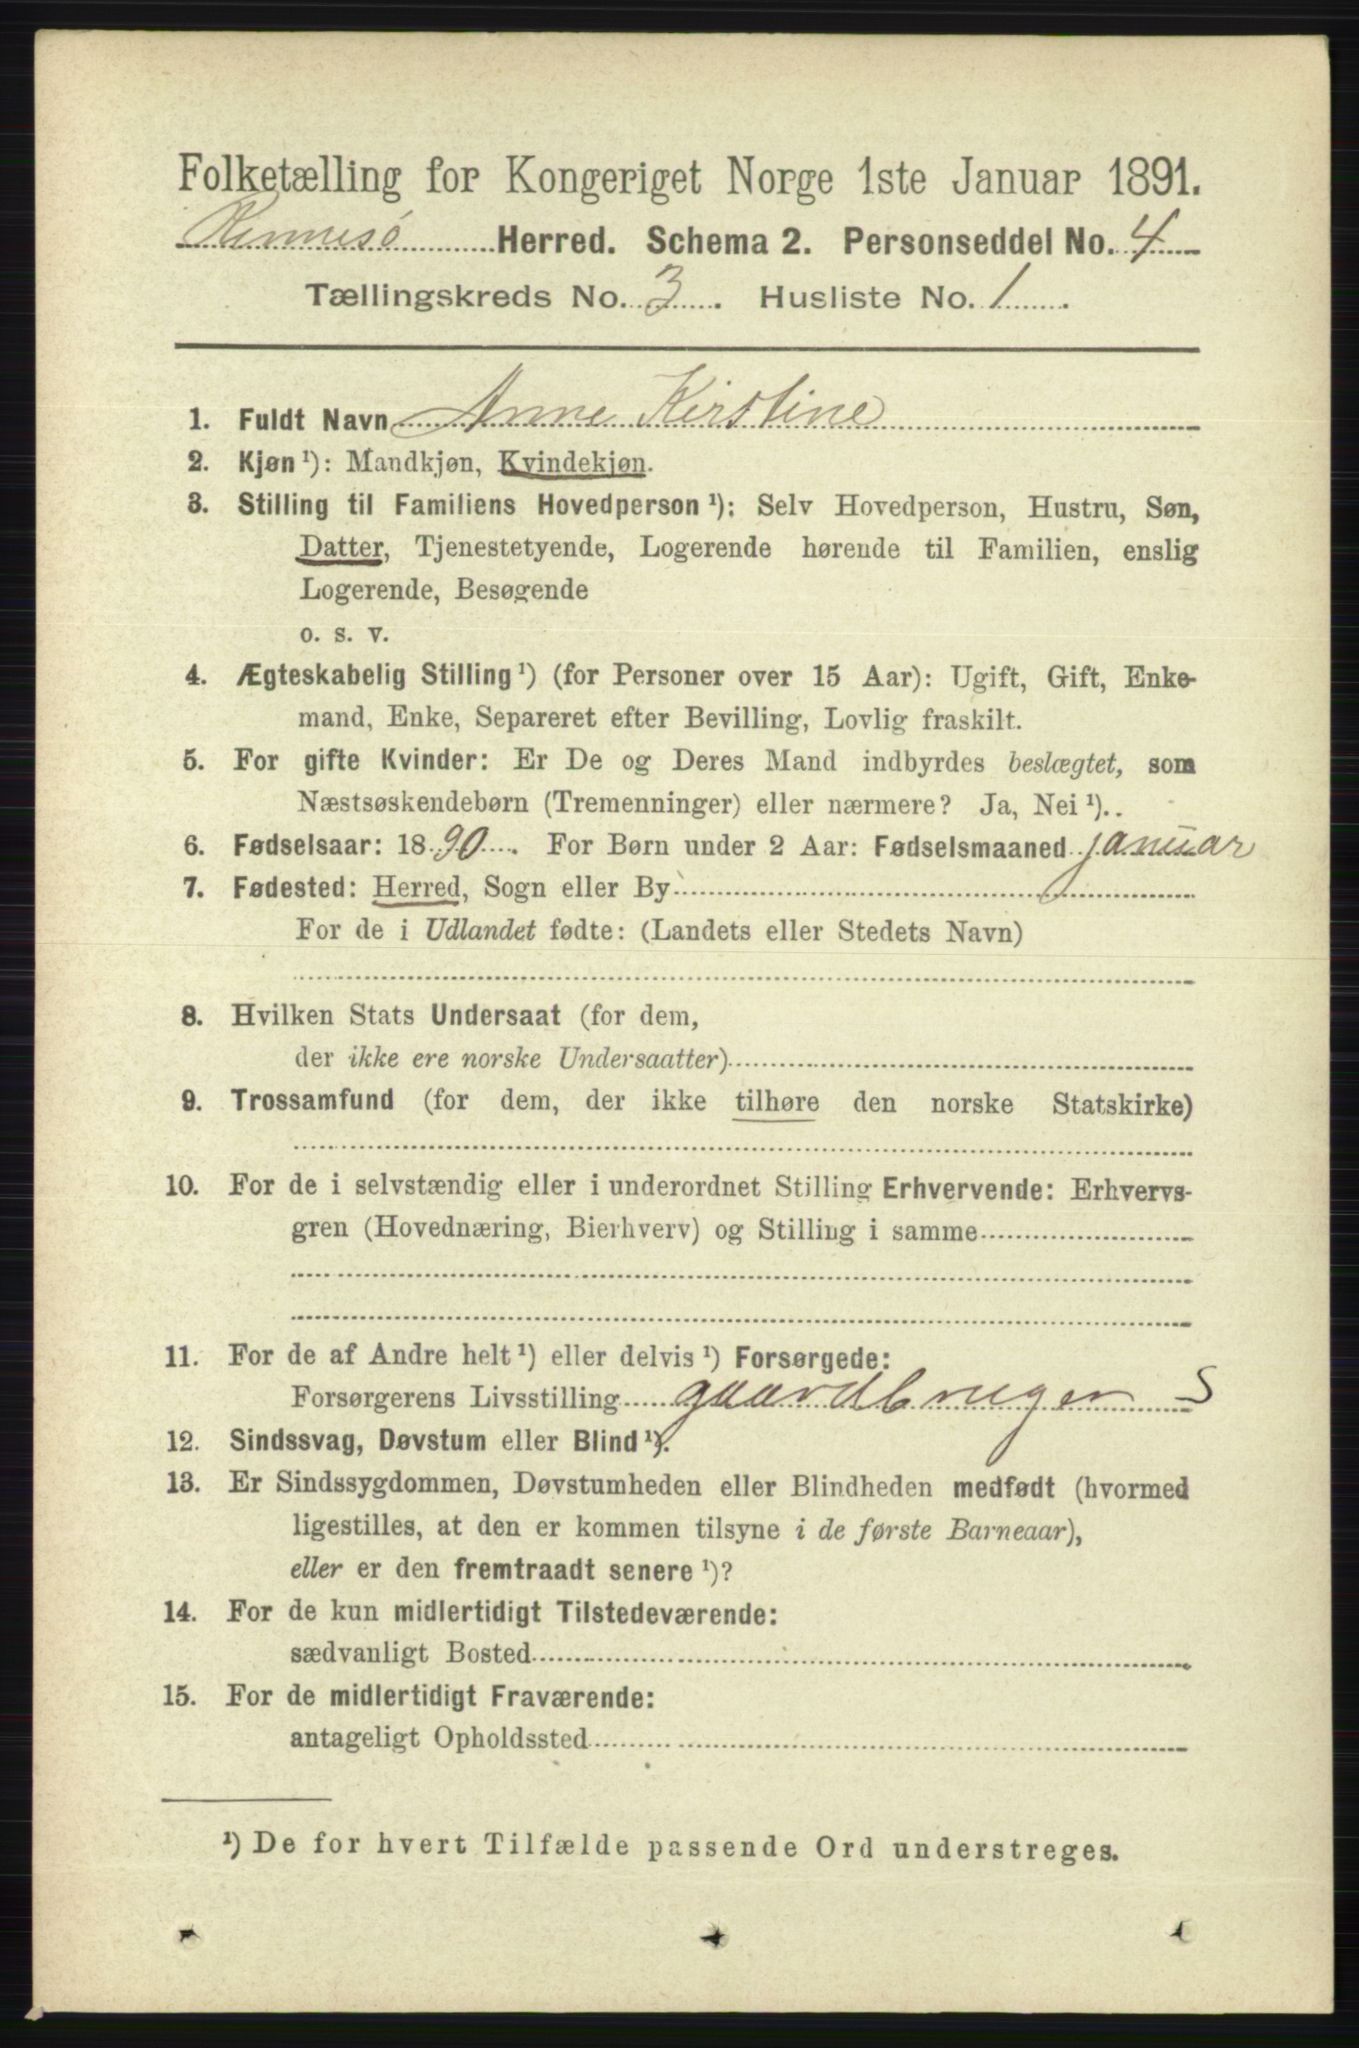 Folketælling for Kongeriget Norge 1ste Januar 1891.
Rennesö Herred. Schema 2. Personseddel No. 4
Tællingskreds No. 3. Husliste No. 1.
1. Fuldt Navn Anne Kirstine
2. Kjøn ¹): Mandkjøn, Kvindekjøn.
3. Stilling til Familiens Hovedperson ¹): Selv Hovedperson, Hustru, Søn,
Datter, Tjenestetyende, Logerende hørende til Familien, enslig
Logerende, Besøgende
o. s. v.
4. Ægteskabelig Stilling ¹) (for Personer over 15 Aar): Ugift, Gift, Enke-
mand, Enke, Separeret efter Bevilling, Lovlig fraskilt.
5. For gifte Kvinder: Er De og Deres Mand indbyrdes beslægtet, som
Næstsøskendebørn (Tremenninger) eller nærmere? Ja, Nei ¹)..
6. Fødselsaar: 1890. For Børn under 2 Aar: Fødselsmaaned januar
7. Fødested: Herred, Sogn eller By
For de i Udlandet fødte: (Landets eller Stedets Navn)
8. Hvilken Stats Undersaat (for dem,
der ikke ere norske Undersaatter)
9. Trossamfund (for dem, der ikke tilhøre den norske Statskirke)
10. For de i selvstændig eller i underordnet Stilling Erhvervende: Erhvervs-
gren (Hovednæring, Bierhverv) og Stilling i samme
11. For de af Andre helt ¹) eller delvis ¹) Forsørgede:
Forsørgerens Livsstilling gaardbruger S
12. Sindssvag, Døvstum eller Blind ¹).
13. Er Sindssygdommen, Døvstumheden eller Blindheden medfødt (hvormed
ligestilles, at den er kommen tilsyne i de første Barneaar),
eller er den fremtraadt senere ¹)?
14. For de kun midlertidigt Tilstedeværende:
sædvanligt Bosted
15. For de midlertidigt Fraværende:
antageligt Opholdssted
¹) De for hvert Tilfælde passende Ord understreges.